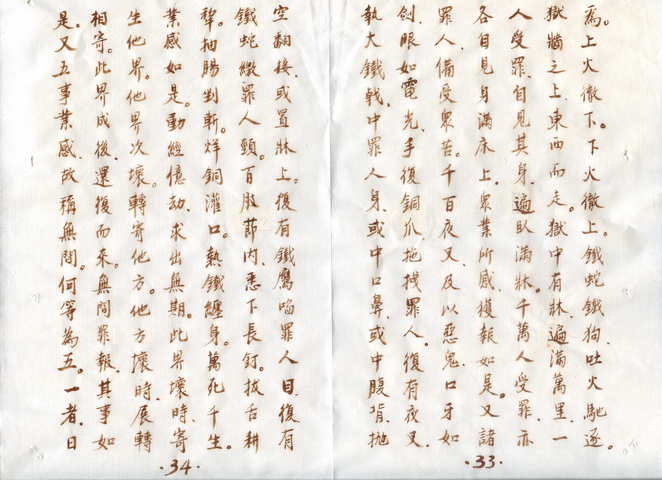 焉。上火徹下。下火徹上。鐵蛇鐵狗。吐火馳逐。
獄牆之上。東西而走。獄中有牀。遍滿萬里。一
人受罪。自見其身。遍臥滿牀。千萬人受罪。亦
各自見身滿床上。眾業所感。獲報如是。又諸
罪人。備受眾苦。千百夜叉。及以惡鬼。口牙如
劍。眼如電光。手復銅爪。拖拽罪人。復有夜叉。
執大鐵戟。中罪人身。或中口鼻。或中腹背。拋
·33·
空翻接。或置牀上。復有鐵鷹啗罪人目。復有
鐵蛇繳罪人頸。百肢節內。悉下長釘。拔舌耕
犁。抽腸剉斬。烊銅灌口。熱鐵纏身。萬死千生。
業感如是。動經億劫。求出無期。此界壞時。寄
生他界。他界次壞。轉寄他方。他方壞時。展轉
相寄。此界成後。還復而來。無間罪報。其事如
是。又五事業感。故稱無間。何等為五。一者。日
·34·